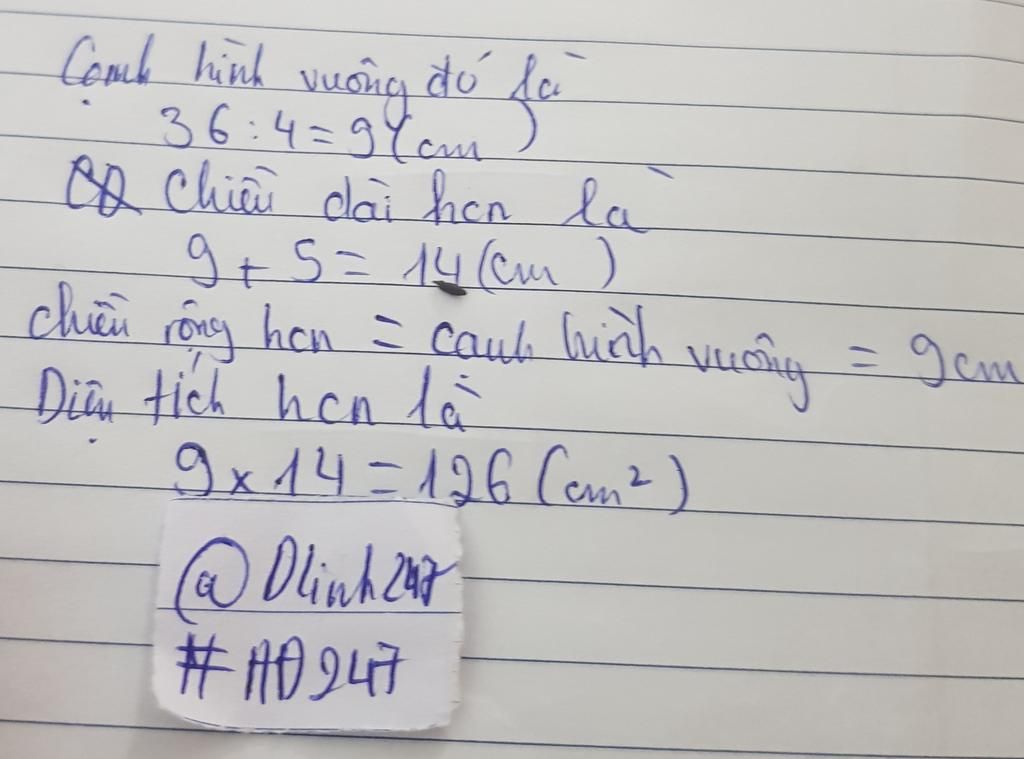 Cạnh hình vuông đó là
36 : 4 = 9 (cm)
Chiều dài hcn là
9 + 5 = 14 (cm)
chiều rộng hcn = cạnh hình vuông = 9cm
Diện tích hcn là
9 x 14 = 126 (cm²)
@Dlinh247
#AD247